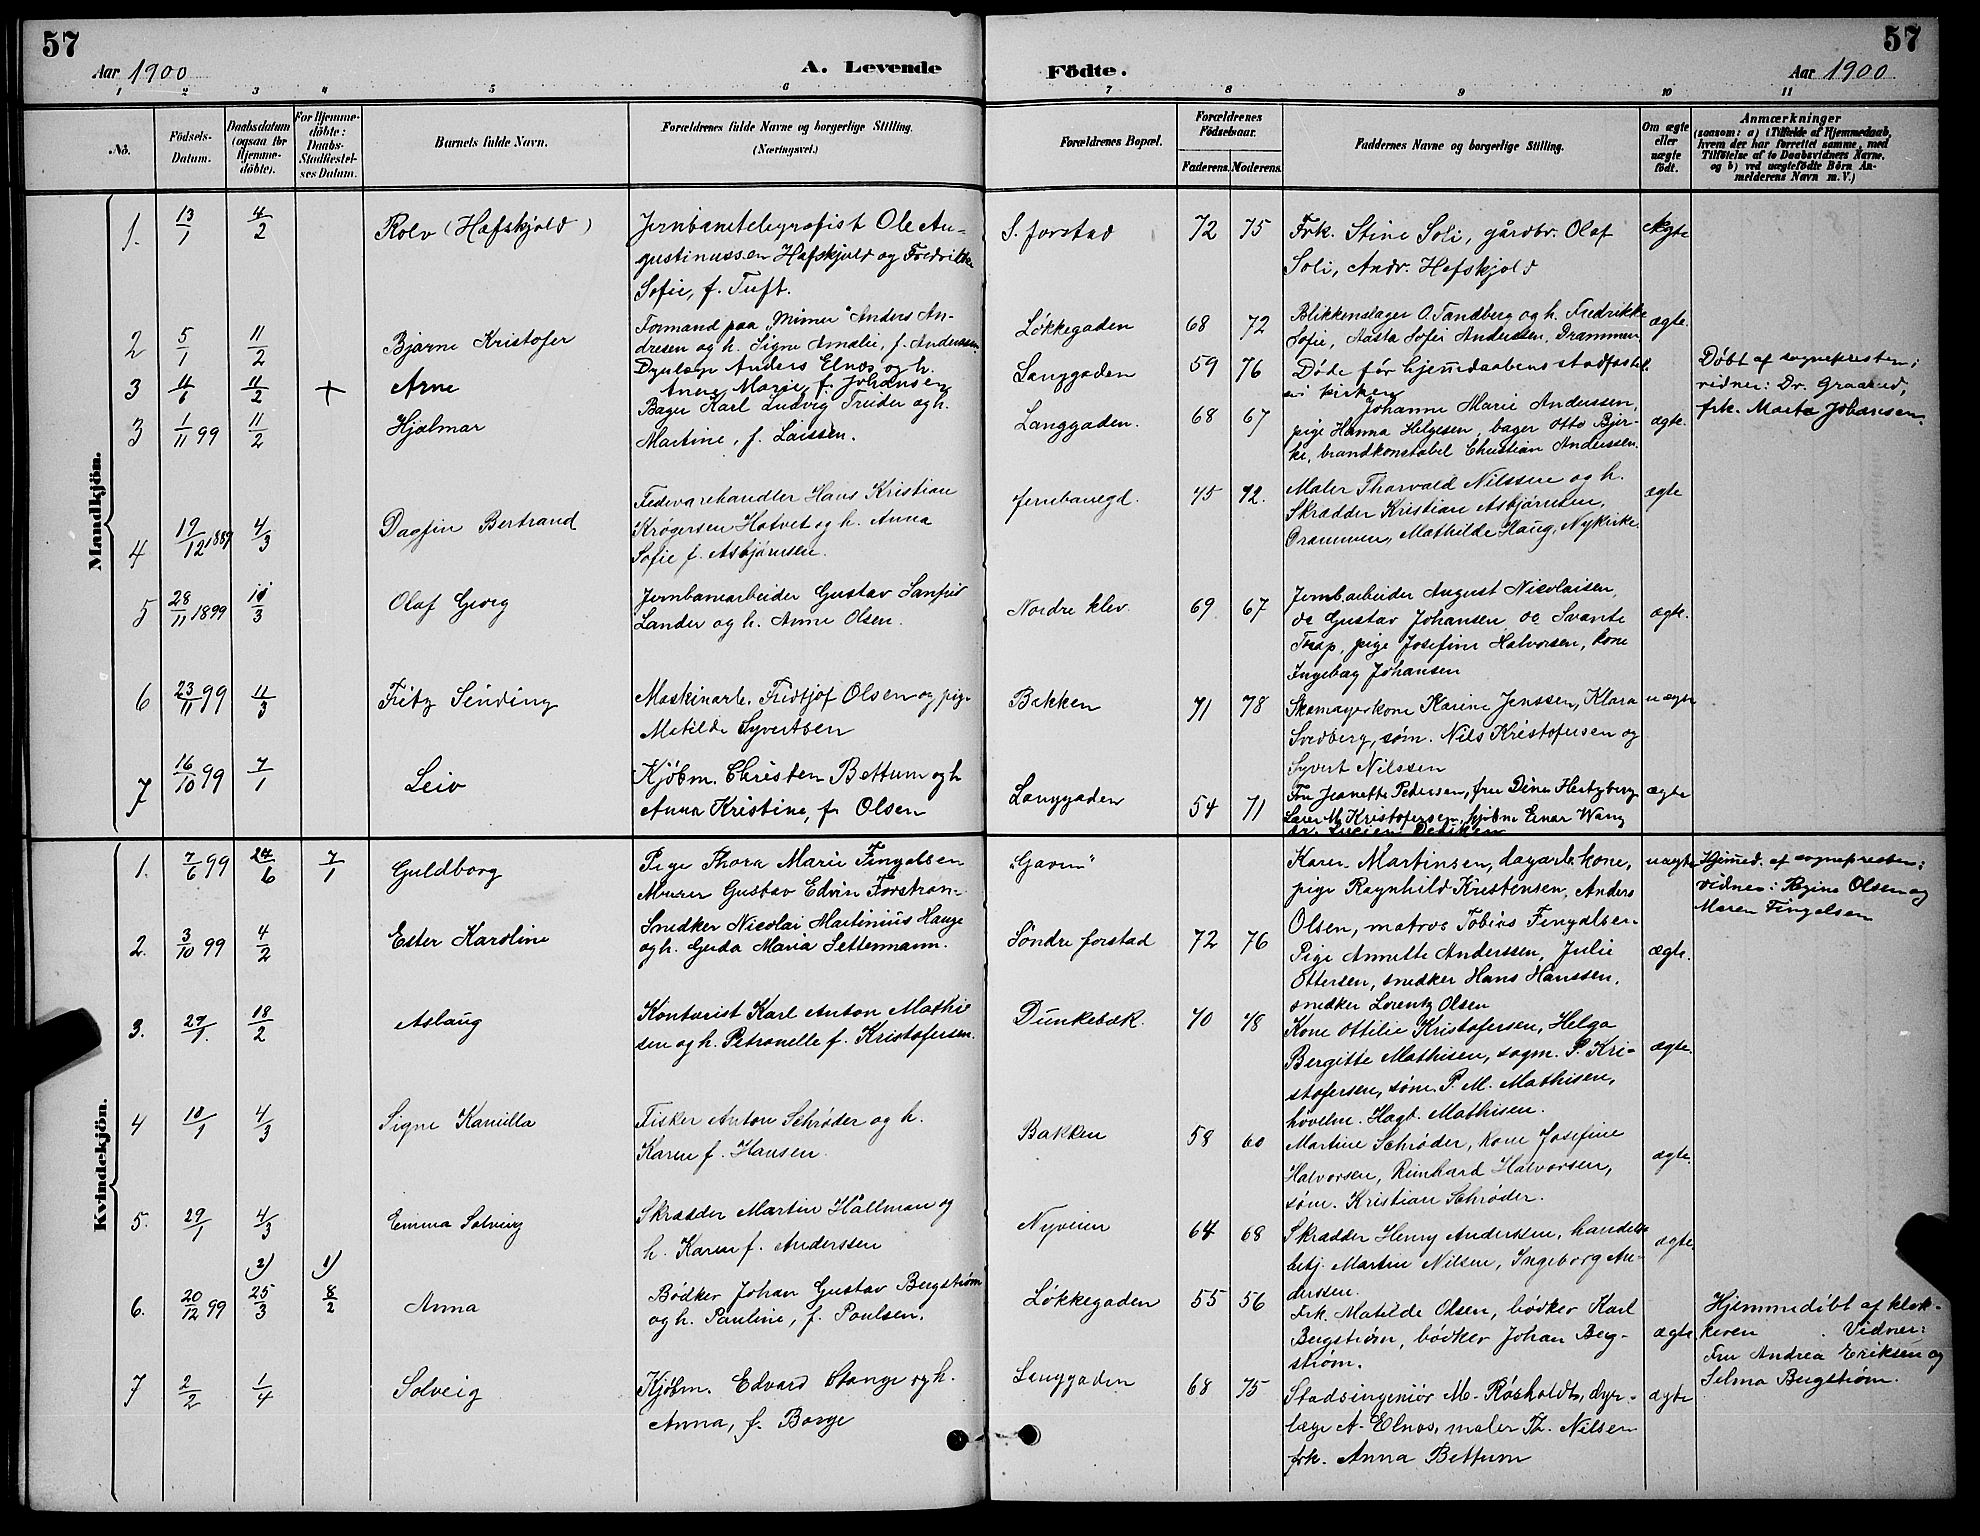 57
Aar 1900
A. Levende Födte.
Aar 1900
57
1 2 3 4 5 6 7 8 9 10 11
No.
Födsels-
Datum.
Daabsdatum
(ogsaa for
Hjemme-
döbte).
For Hjemme-
döbte:
Daabs-
Stadfæstel-
ses Datum.
Barnets fulde Navn.
Forældrenes fulde Navne og borgerlige Stilling.
(Næringsvei.)
Forældrenes Bopæl.
Forældrenes
Födselsaar.
Faderens. Moderens.
Faddernes Navne og borgerlige Stilling.
Om ægte
eller
uægte
födt.
Anmærkninger
(saasom: a) i Tilfælde af Hjemmedaab,
hvem der har forrettet samme, med
Tilföielse af to Daabsvidners Navne,
og b) ved uægtefödte Börn An-
melderens Navn m. V.)
Mandkjön.
1. 13/1 4/2 Rolv (Hafskjold)
Jernbanetelegrafist Ole Au-
gustinussen Hafskjold og Fredrikke
Sofie, f. Tuft.
S. forstad 72 75
Frk. Stine Soli, gårdbr. Olaf
Soli, Andr. Hafskjold
Ægte
2 5/1 11/2 Bjarne Kristofer
Formand paa "Mimer" Anders An-
dresen og h. Signe Amalie, f. Anderssen
Løkkegaden 68 72
Blikkenslager O. Tandberg og h. Fredrikke
Sofie, Aasta Sofie Anderssen, Drammen
ægte.
3 4/1 11/2 + Arne
Dyrlæge Anders Elnæs og h.
Anne Marie, f. Johansen
Langgaden 59 76
Døde før hjemmedaabens stadfæstel.
i kirken
Døbt af sognepresten;
vidner: Dr. Graarud,
frk. Marta Johansen.
3 1/11 99 11/2 Hjalmar
Bager Karl Ludvig Treider og h.
Martine, f. Larssen.
Langgaden. 68 67
Johanne Marie Anderssen,
pige Hanna Helgesen, bager Otto Bjer-
ke, brandkonstabel Christian Anderssen.
ægte.
4 19/12 1889 4/3 Dagfin Bertrand
Fedevarehandler Hans Kristian
Krøgersen Hotvet og h. Anna
Sofie f. Asbjørnsen.
Jernbanegd. 75 72.
Maler Thorvald Nilssen og h.
Skrædder Kristian Asbjørnsen,
Drammen, Mathilde Haug, Nykirke
ægte
5 28/11 1899 11/3 Olaf Georg
Jernbanearbeider Gustav Sanfrid
Lander og h. Anne Olsen.
Nordre klev 69 67
Jernb.arbeider August Nicolaisen,
do Gustav Johansen, do Svante
Trap, pige Josefine Halvorsen, kone
Ingebag Johansen
ægte.
6 23/11 99 4/3 Fritz Sinding
Maskinarb. Fridtjof Olsen og pige
Matilde Syvertsen
Bakken 71 78
Skomagerkone Karine Jenssen, Klara
Svedberg, søm. Nils Kristofersen og
Syvert Nilssen
uægte
7 16/10 99 7/1 Leiv
Kjöbm. Christen Bettum og h
Anna Kristine, f. Olsen
Langgaden 54 71
Fru Jeanette Pedersen, fru Dina Hertzberg
Lærer M. Kristofersen, kjöbm Einar Wang
ægte
Kvindekjön.
1. 7/6 99 24/6 7/1 Guldborg
Pige Thora Marie Fingelsen
Murer Gustav Edvin Forstrøm.
"Gaven"
Karen Martinsen, dagarb. kone,
pige Ragnhild Kristensen, Anders
Olsen, matros Tobias Fingalsen
uægte
Hjemmed. af sognepresten;
vidner: Regine Olsen og
Maren Fingelsen
2. 3/10 99 4/2 Ester Karoline
Snedker Nicolai Martinius Hauge
og h. Gerda Maria Settermann.
Söndre forstad 72 76
Pige Annette Anderssen, Julie
Ottersen, snedker Hans Hanssen,
snedker Lorentz Olsen
ægte.
3. 27/1. 18/2 Aslaug
Kontorist Karl Anton Mathi-
sen og h. Petronelle f. Kristofersen.
Dunkebæk. 70 78
Kone Ottilie Kristofersen, Helga
Bergitte Mathisen, sagm. P. Kri-
stofersen, søm. P. M. Mathisen,
høvelm. Hagb. Mathisen.
ægte.
4 10/1 4/3 Signe Kamilla
Fisker Anton Schrøder og h.
Karen f. Hansen.
Bakken 58 60
Martine Schrøder, kone Josefine
Halvorsen, Reinhard Halvorsen,
søm. Kristian Schrøder.
ægte.
5. 29/1 4/3 Emma Solveig
Skrædder Martin Hållman og
h. Karen f. Anderssen
Nyveien 64 68
Skrædder Henry Anderssen, handels-
betj. Martin Nilsen, Ingeborg An-
derssen.
ægte.
6. 20/12 99 2) 25/3 1) 8/2 Anna
Bødker Johan Gustav Bergstrøm
og h. Pauline, f. Poulsen.
Løkkegaden 55 56
Frk. Matilde Olsen, bødker Karl
Bergstrøm, bødker Johan Berg-
strøm.
ægte
Hjemmedøbt af klok-
keren . Vidner:
Fru Andrea Eriksen og
Selma Bergstrøm.
7 2/2 1/4 Solveig
Kjøbm. Edvard Stange og h.
Anna, f. Borge
Langgaden 68 75
Stadsingeniør M. Røsholdt, dyr-
læge A. Elnæs, maler Th. Nilsen
frk. Anna Bettum
ægte